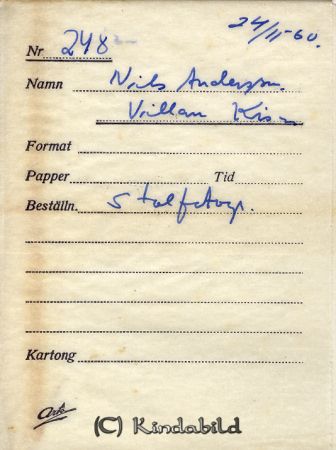 24/11-60.
Nr 248
Namn Nils Andersson.
Villan Kisa
Format
Papper Tid
Beställn. 5 talfotogr.
Kartong
Ark
(C) Kindabild